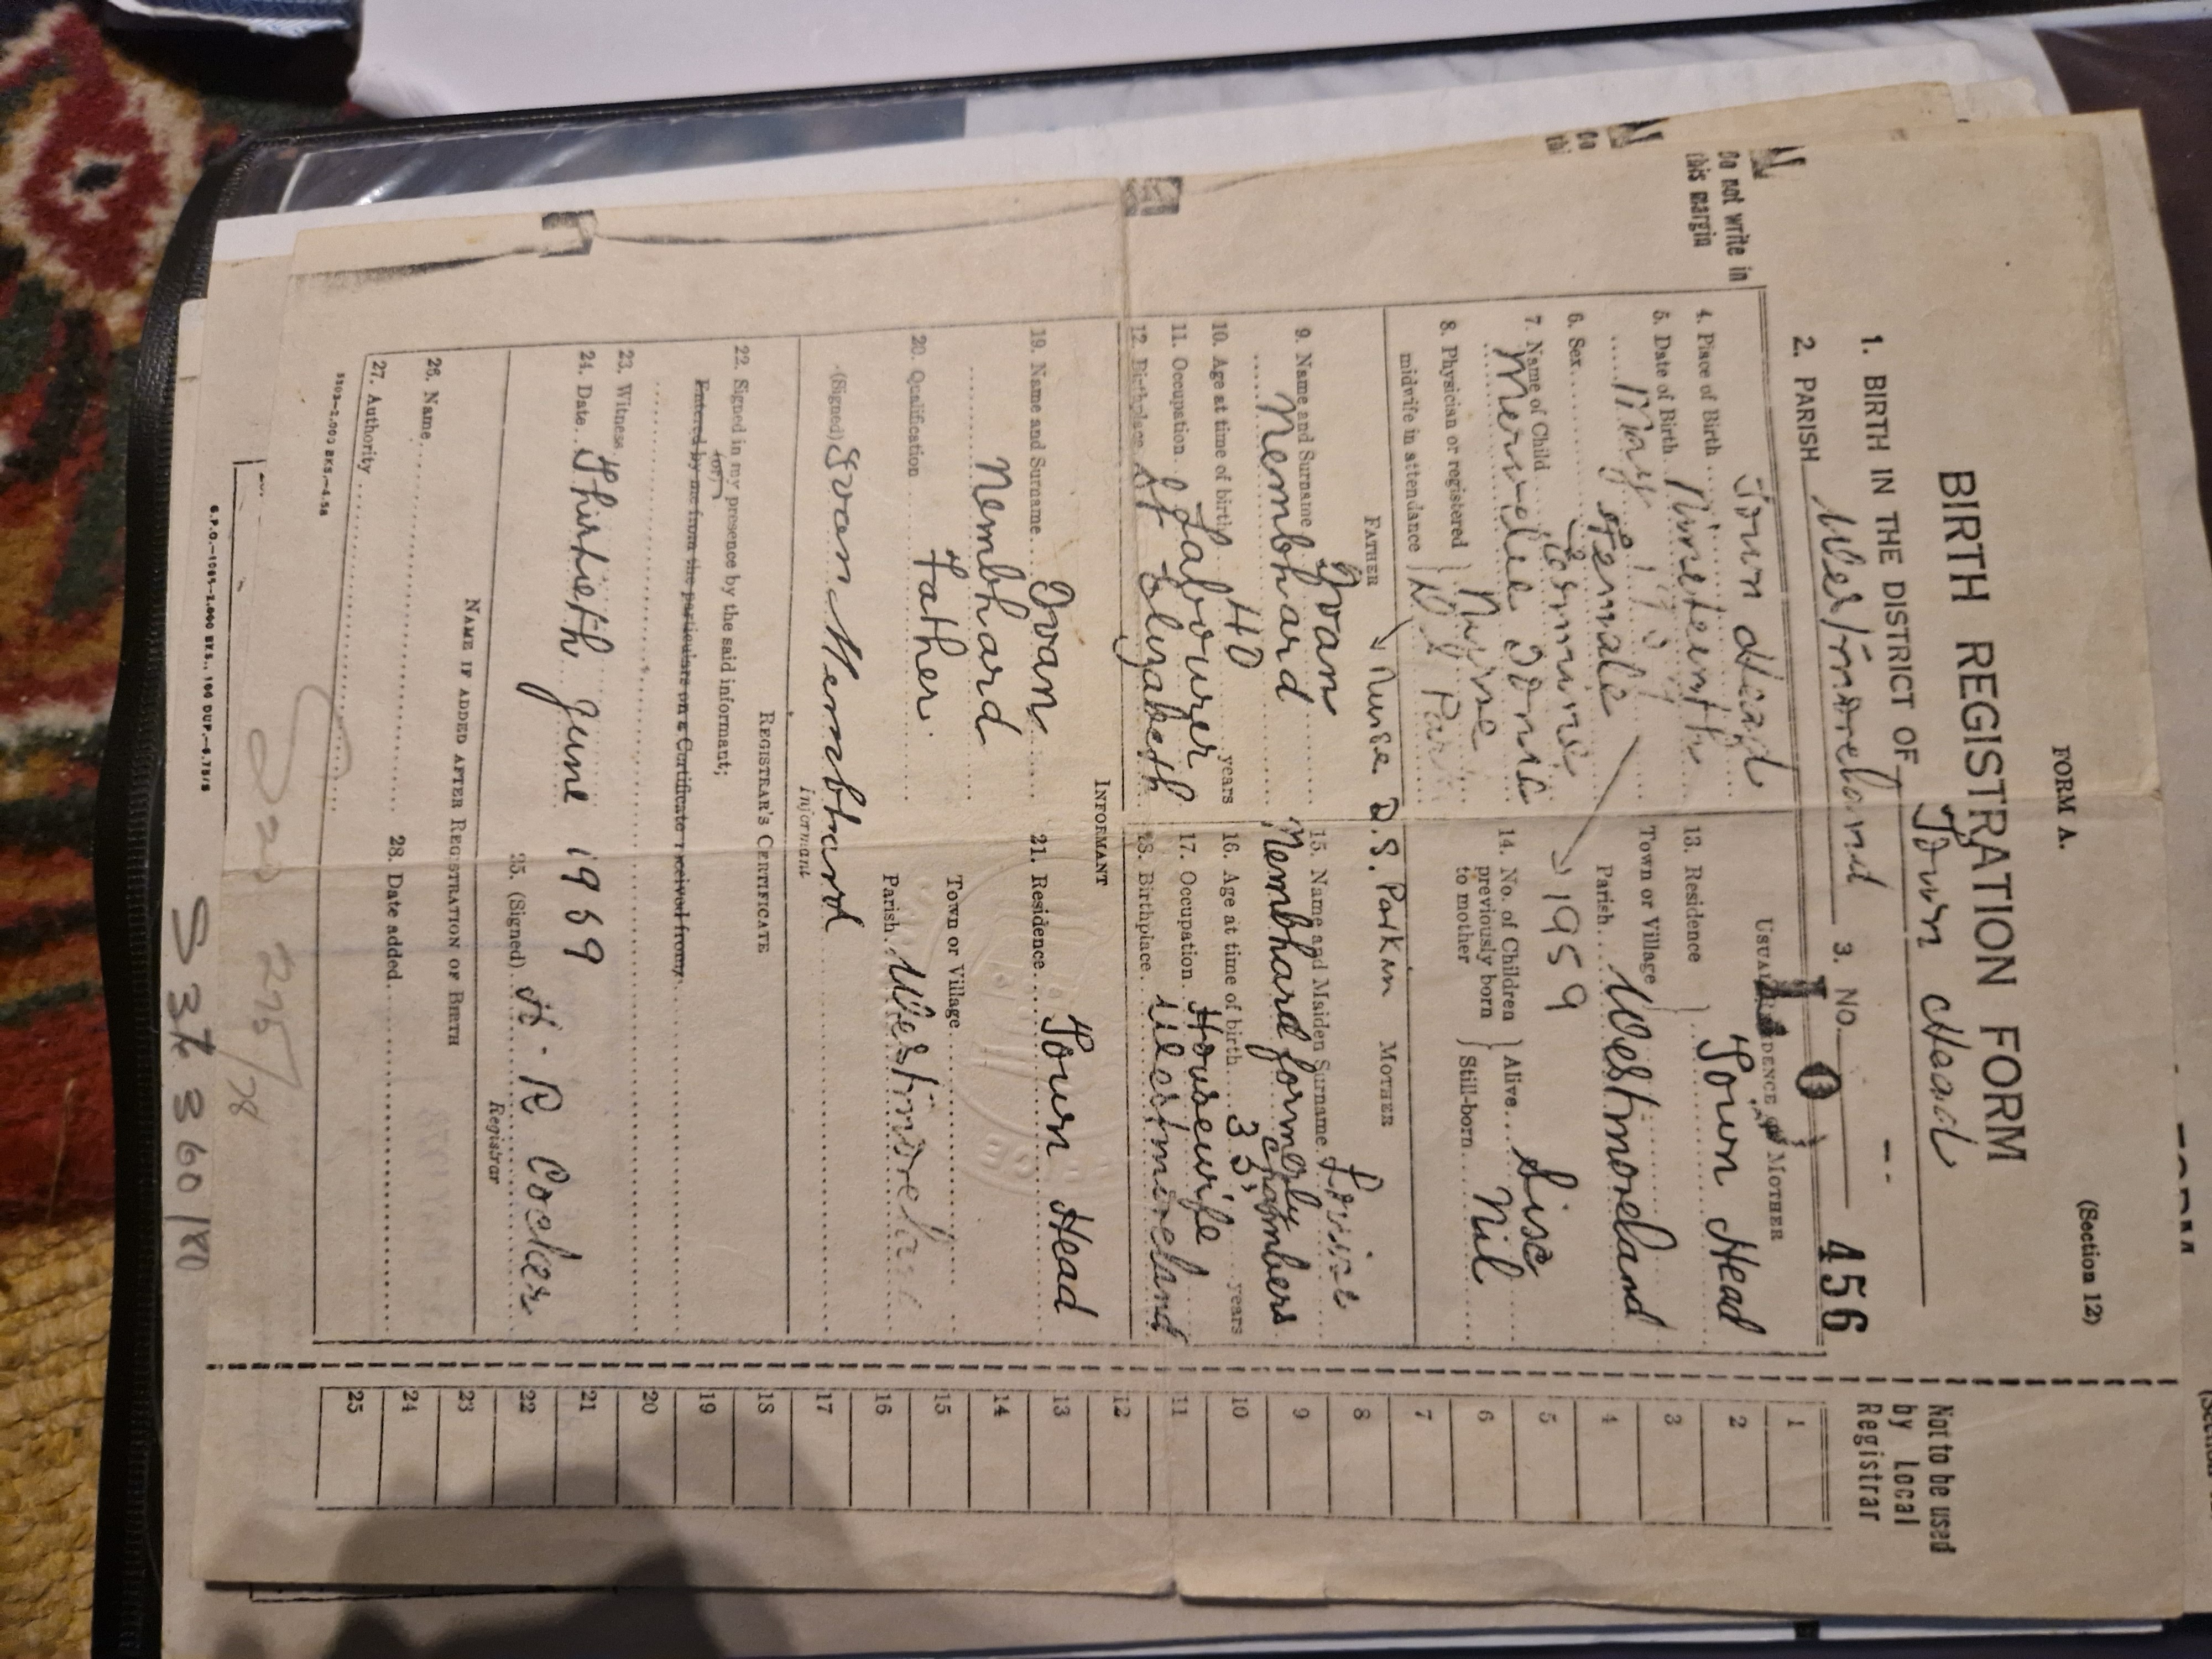 FORM A.
(Section 12)
BIRTH REGISTRATION FORM
1. BIRTH IN THE DISTRICT OF Town Head
2. PARISH Westmoreland 3. NO. 456
Do not write in
this margin
Not to be used
by Local
Registrar
4. Place of Birth Town Head
5. Date of Birth Nineteenth
May
6. Sex Female → 1959
7. Name of Child
8. Physician or registered
midwife in attendance
Nurse
Nurse D. S. Parkin
USUAL RESIDENCE OF MOTHER
13. Residence Town Head
Town or Village
Parish Westmoreland
14. No. of Children
previously born
to mother
Alive Six
Still-born Nil
FATHER
9. Name and Surname Ivan
Nembhard
10. Age at time of birth 40 years
11. Occupation Labourer
12. Birthplace St Elizabeth
MOTHER
15. Name and Maiden Surname Louise
Nembhard formerly
Chambers
16. Age at time of birth 33 years
17. Occupation Housewife
18. Birthplace Westmoreland
INFORMANT
19. Name and Surname Ivan
Nembhard
20. Qualification Father
21. Residence Town Head
Town or Village
Parish Westmoreland
(Signed) Ivan Nembhard
Informant
REGISTRAR'S CERTIFICATE
22. Signed in my presence by the said informant;
(or)
Entered by me from the particulars on a Certificate received from;
23. Witness
24. Date Thirtieth June 1959
25. (Signed) H. R. Cocker
Registrar
NAME IF ADDED AFTER REGISTRATION OF BIRTH
26. Name
27. Authority
28. Date added
1
2
3
4
5
6
7
8
9
10
11
12
13
14
15
16
17
18
19
20
21
22
23
24
25